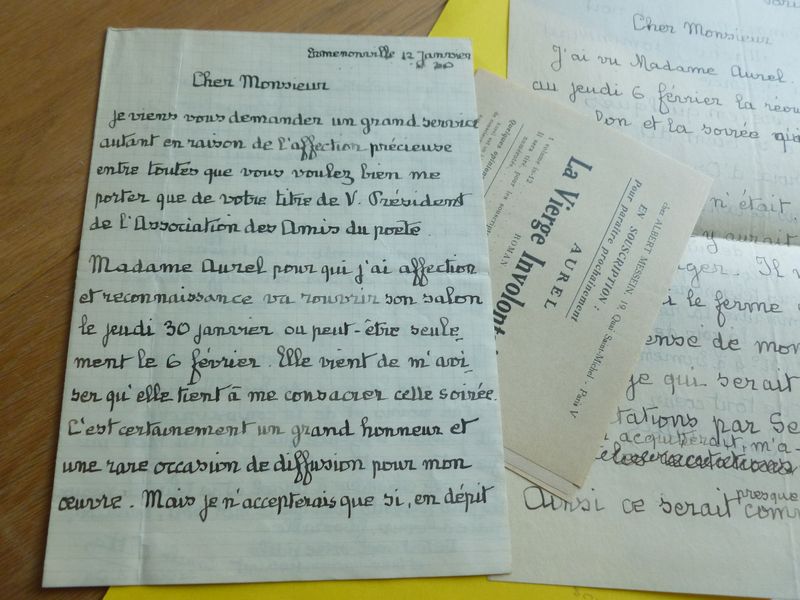 Ermenonville 12 Janvier
Cher Monsieur
je viens vous demander un grand service
autant en raison de l'affection précieuse
entre toutes que vous voulez bien me
porter que de votre titre de V. Président
de l'Association des Amis du poète.
Madame Aurel pour qui j'ai affection
et reconnaissance va rouvrir son salon
le jeudi 30 janvier ou peut-être seule
ment le 6 février. Elle vient de m'avi
ser qu'elle tient à me consacrer celle soirée.
C'est certainement un grand honneur et
une rare occasion de diffusion pour mon
œuvre. Mais je n'accepterais que si, en dépit
chez ALBERT MESSEIN, 19, Quai Saint-Michel - Paris V
EN SOUSCRIPTION :
Pour paraître prochainement
AUREL
La Vierge Involont
ROMAN
1 volume in-12
Il sera tiré,
Quelques opinions
Cher Monsieur
J'ai vu Madame Aurel.
au jeudi 6 février la réou
son et la soirée qui
n'était,
y aurait
ger. Il
le ferme
ense de mon
je qui serait
tations par Se
acquitterait, m'a-
presque
Ainsi ce serait comm